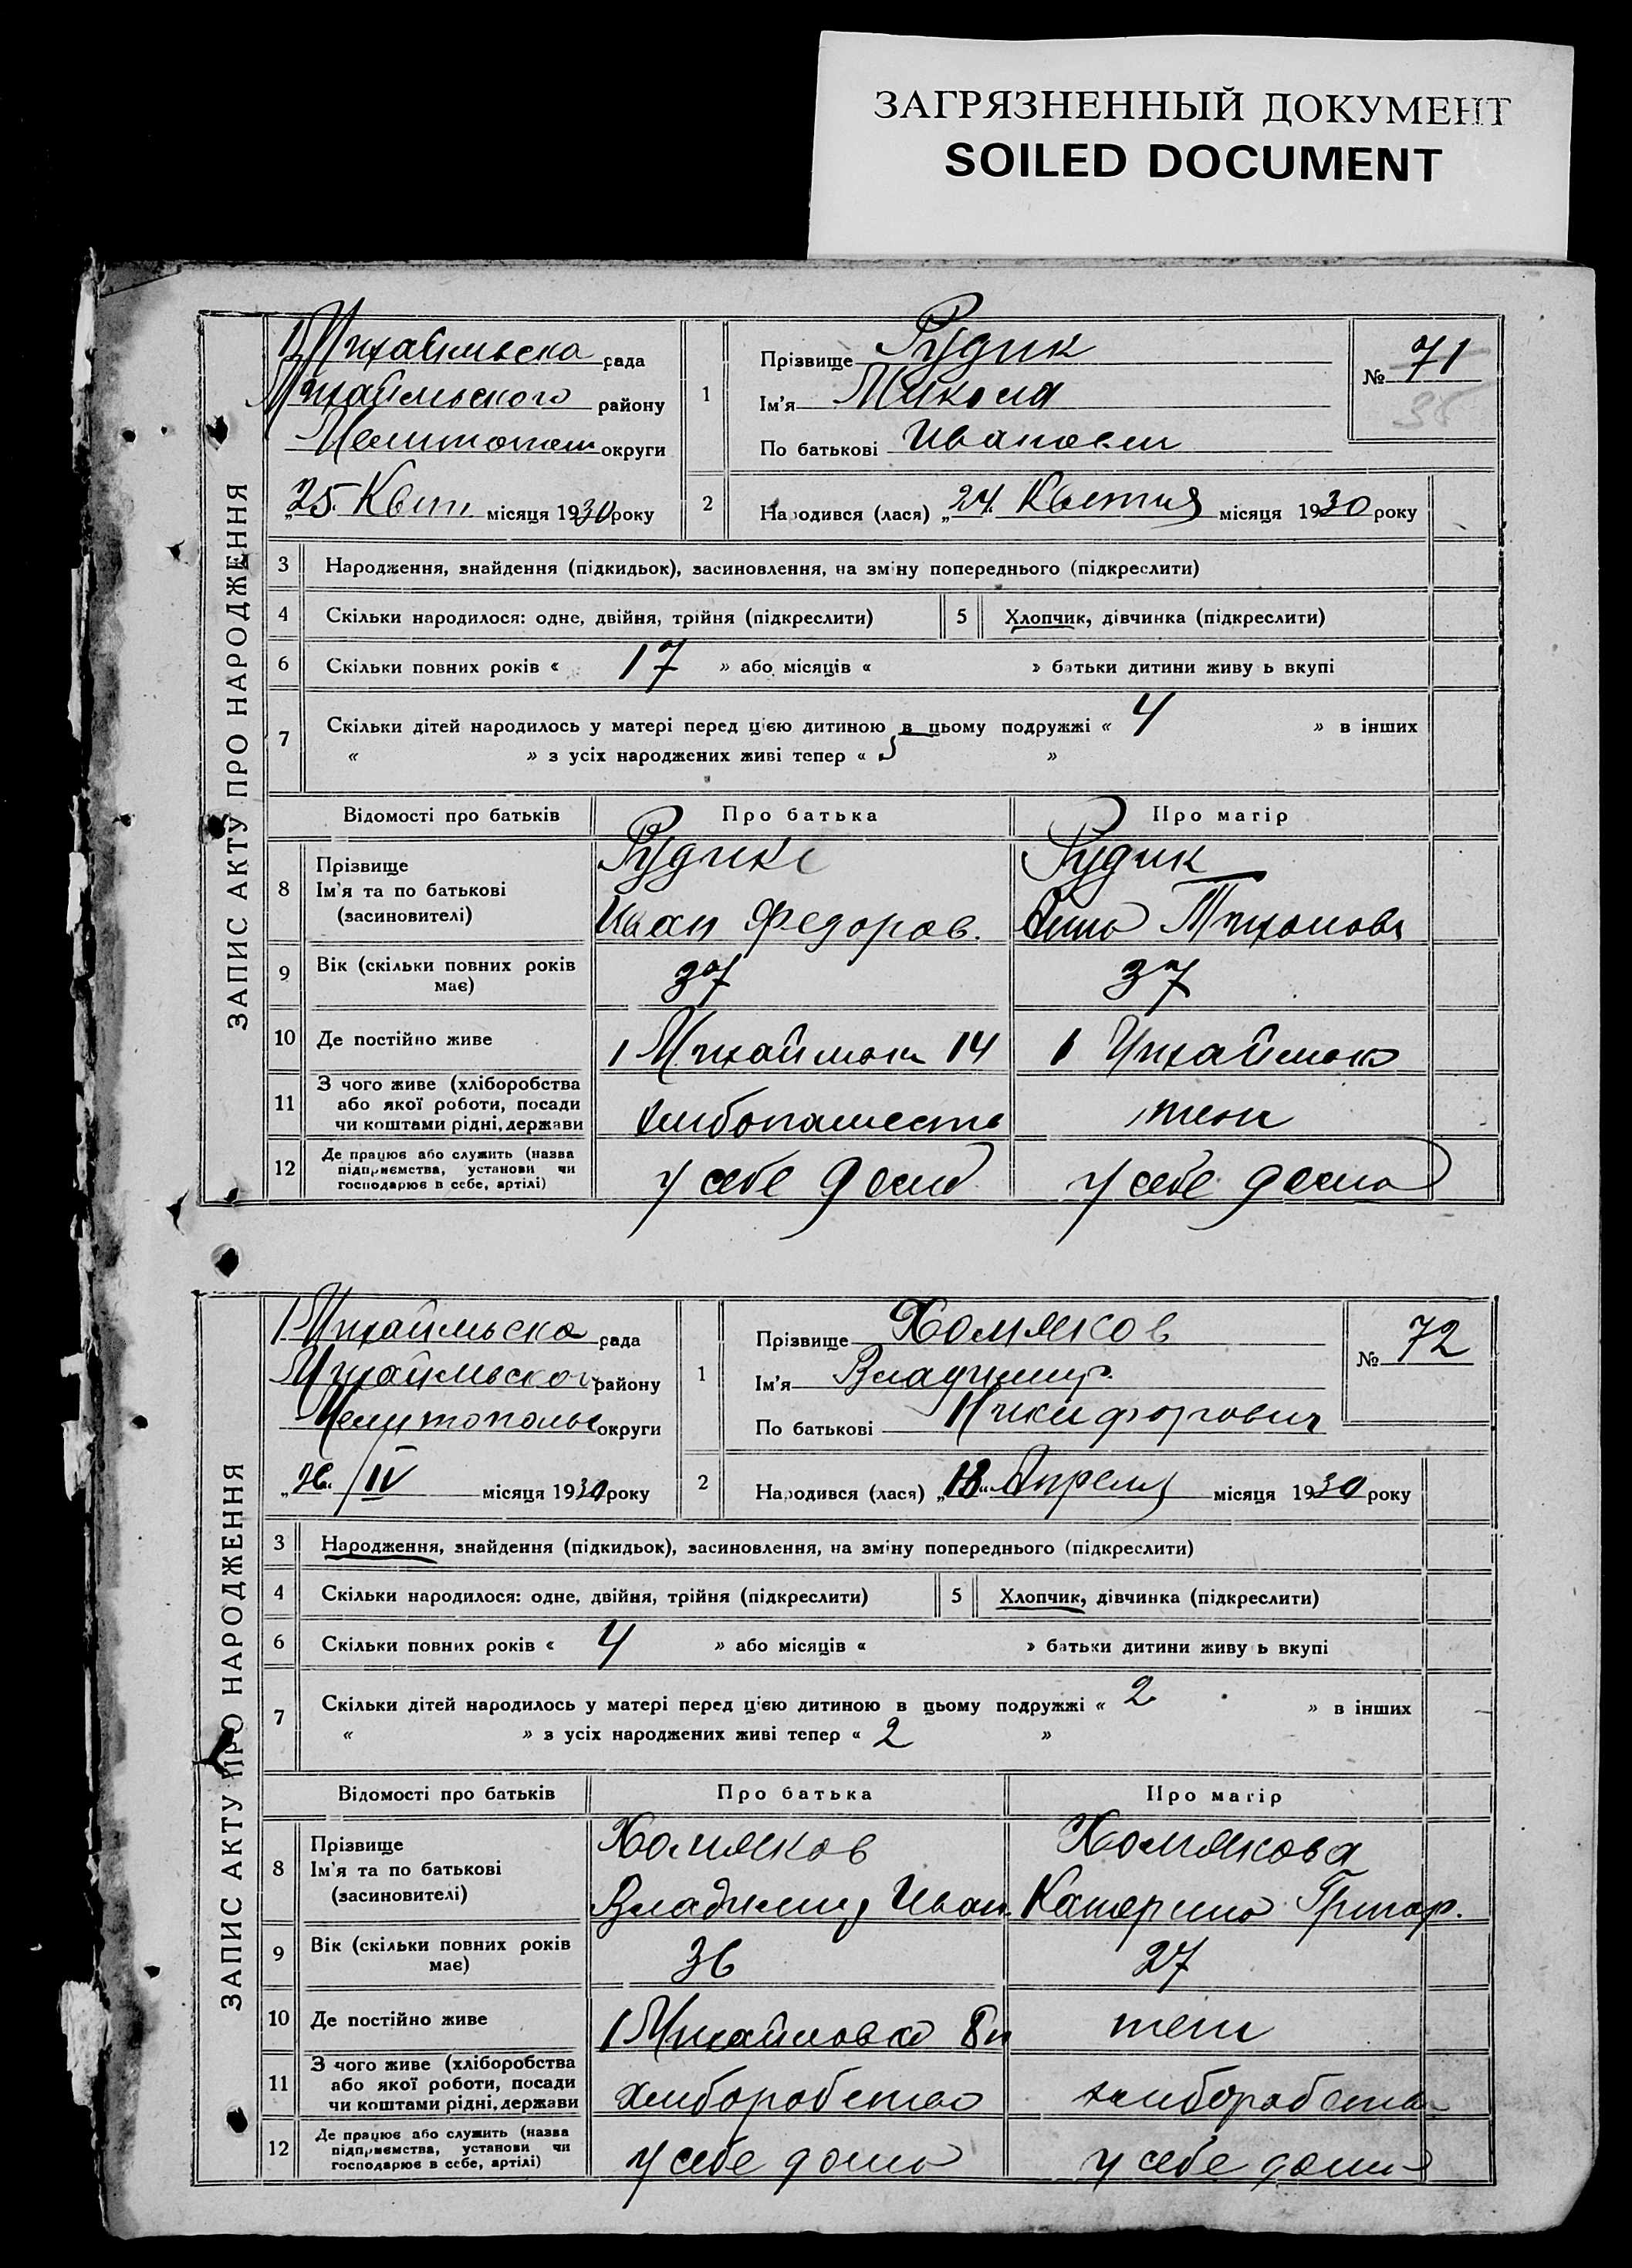 ЗАГРЯЗНЕННЫЙ ДОКУМЕНТ
SOILED DOCUMENT
ЗАПИС АКТУ ПРО НАРОДЖЕННЯ
1 Михайлівська рада
Михайлівського району
Мелитопол округи
„25. Квіт. місяця 1930 року
1
Прізвище Рудик
Ім'я Микола
По батькові Иванович
№ 71
35
2
Народився (лася) „24. Квітня місяця 1930 року
3 Народження, знайдення (підкидьок), засиновлення, на зміну попереднього (підкреслити)
4 Скільки народилося: одне, двійня, трійня (підкреслити) 5 Хлопчик, дівчинка (підкреслити)
6 Скільки повних років « 17 » або місяців « » батьки дитини живу ь вкупі
7 Скільки дітей народилось у матері перед цією дитиною в цьому подружжі « 4 » в інших
« » з усіх народжених живі тепер « »
Відомості про батьків Про батька Про матір
8 Прізвище Рудик Рудик
Ім'я та по батькові
(засновителі) Иван Федоров. Анна Тихонова
9 Вік (скільки повних років має) 37 37
10 Де постійно живе 1 Михайловка 14 1 Михайловка
11 З чого живе (хліборобства
або якої роботи, посади
чи коштами рідні, держави хлибопашество тоже
12 Де працює або служить (назва
підприємства, установи чи
господарює в себе, артілі) у себе дома у себе дома
ЗАПИС АКТУ ПРО НАРОДЖЕННЯ
1 Михайлівська рада
Михайлівського району
Мелитопольс округи
„26. /IV місяця 1930 року
1
Прізвище Хомяков
Ім'я Владимир
По батькові Никифорович
№ 72
2
Народився (лася) „18“ Апреля місяця 1930 року
3 Народження, знайдення (підкидьок), засиновлення, на зміну попереднього (підкреслити)
4 Скільки народилося: одне, двійня, трійня (підкреслити) 5 Хлопчик, дівчинка (підкреслити)
6 Скільки повних років « 4 » або місяців « » батьки дитини живу ь вкупі
7 Скільки дітей народилось у матері перед цією дитиною в цьому подружжі « 2 » в інших
« » з усіх народжених живі тепер « 2 »
Відомості про батьків Про батька Про матір
8 Прізвище Хомяков Хомякова
Ім'я та по батькові
(засиновителі) Владимир Иван. Катерина Григор.
9 Вік (скільки повних років має) 36 27
10 Де постійно живе 1 Михайловка 8
11 З чого живе (хліборобства
або якої роботи, посади
чи коштами рідні, держави хлиборобство хлиборобство
12 Де працює або служить (назва
підприємства, установи чи
господарює в себе, артілі) у себе дома у себе дома